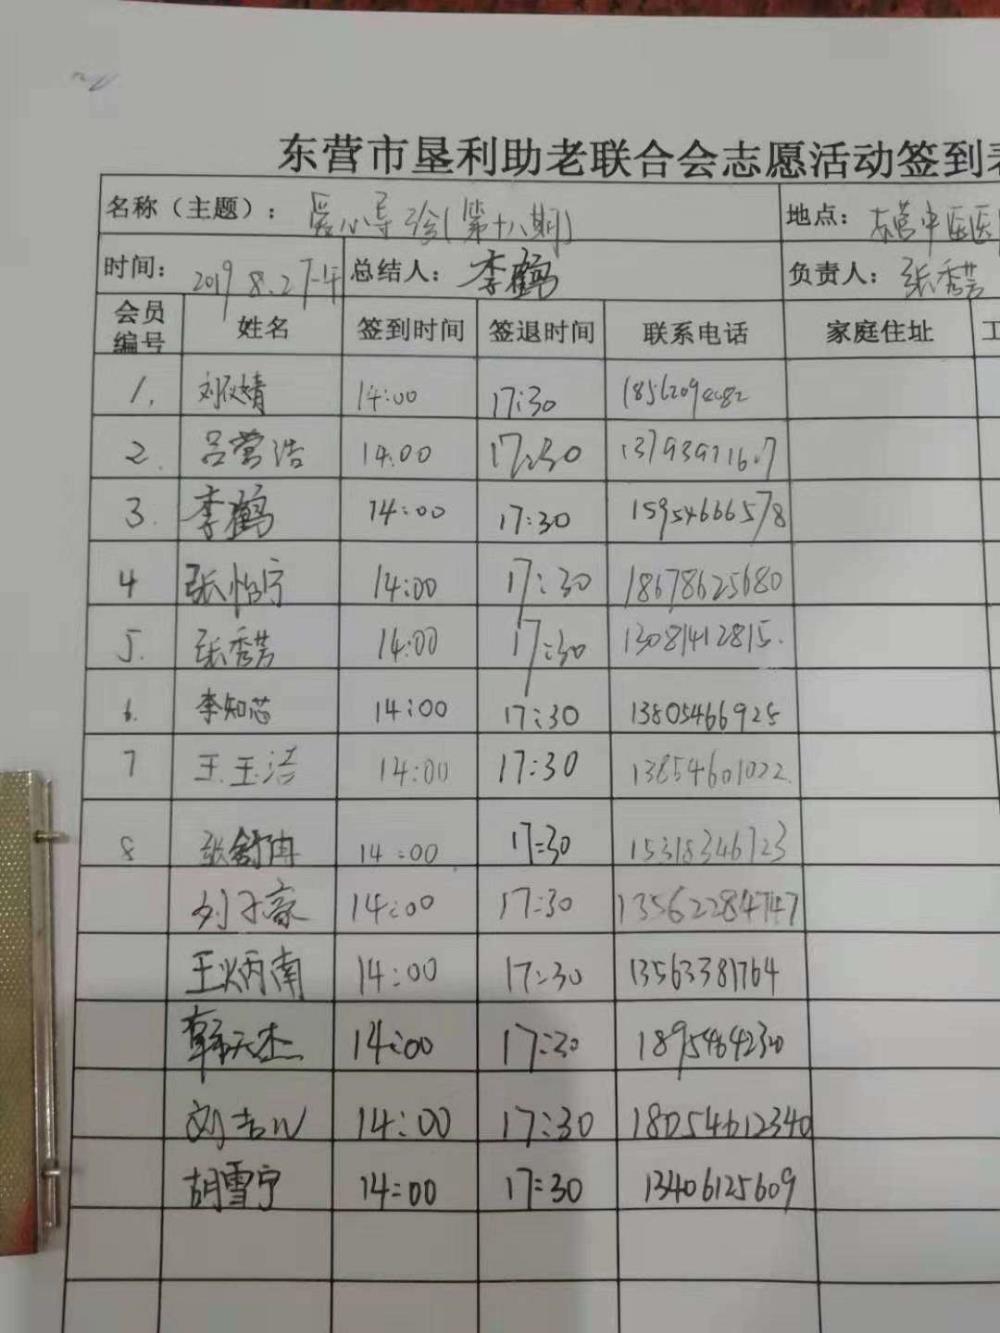 东营市垦利助老联合会志愿活动签到表
名称（主题）： 爱心导诊(第十八期) 地点： 东营中医医
时间： 2019 8.27下午 总结人： 李鹤 负责人： 张秀芳
会员编号 姓名 签到时间 签退时间 联系电话 家庭住址 工
1. 刘仪婧 14:00 17:30
2. 吕营浩 14:00 17:30
3. 李鹤 14:00 17:30 15954666578
4 张怡宁 14:00 17:30 18678625680
5. 张秀芳 14:00 17:30 13081412815.
6. 李知芯 14:00 17:30 13805466925
7 王玉洁 14:00 17:30 13854601022
8 张舒冉 14:00 17:30 15318346723
刘子豪 14:00 17:30 13562284747
王炳南 14:00 17:30 13563381764
韩天杰 14:00 17:30
刘 14:00 17:30 18054612340
胡雪宁 14:00 17:30 13406125609